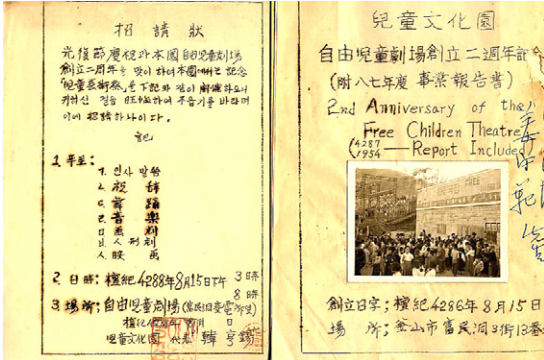 招請狀
光復節慶祝과 本園 自由兒童劇場
創立二周年을 맞이하여 本園에서는 記念
「兒童藝術祭」를 下記와 같이 開催하오니
바라며
이에 招請하나이다.
1. 순서:
ㄱ. 인사 말씀
ㄴ. 祝辭
ㄷ. 舞踊
ㄹ. 音樂
ㅁ. 童劇
ㅂ. 人形劇
ㅅ. 映画
2. 日時: 檀紀 4288年 8月 15日 下午 3時
8時
3. 場所: 自由兒童劇場
檀紀 月 日
兒童文化園 代表 韓亨錫
兒童文化園
自由兒童劇場創立二週年記
(附八七年度 事業報告書)
2nd Anniversary of the
Free Children Theatre
(4287
1954 — Report Included)
創立日字; 檀紀 4286年 8月 15日
場所; 釜山市富民洞3街13番